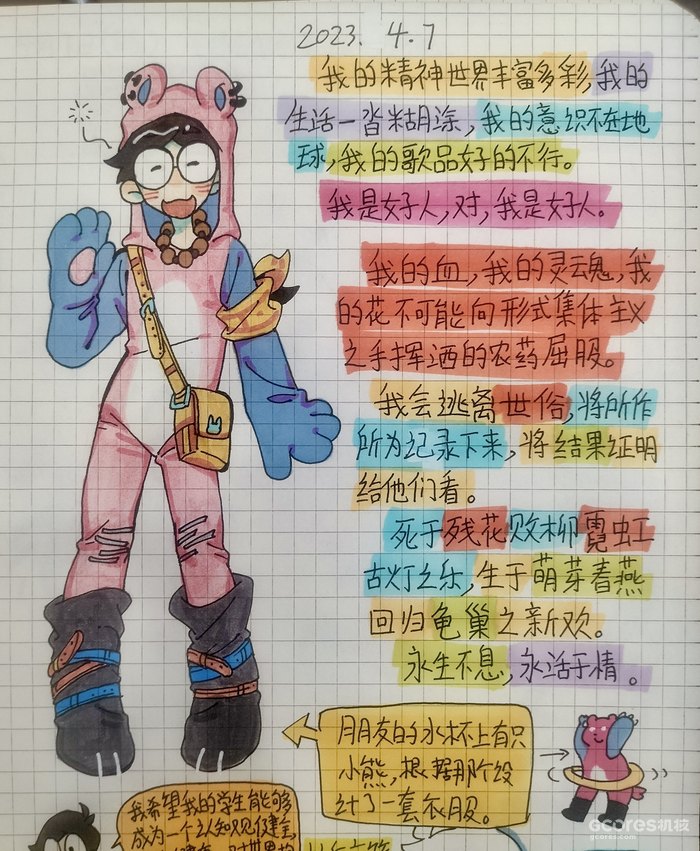 2023. 4.7
我的精神世界丰富多彩,我的
生活一沓糊涂,我的意识不在地
球,我的歌品好的不行。
我是好人,对,我是好人。
我的血,我的灵魂,我
的花不可能向形式集体主义
之手挥洒的农药屈服。
我会逃离世俗,将所作
所为记录下来,将结果证明
给他们看。
死于残花败柳霓虹
古灯之乐,生于萌芽春燕
回归龟巢之新欢。
永生不息,永活于情。
朋友的水杯上有只
小熊,根据那个设
计了一套衣服。
我希望我的学生能够
成为一个认知观健全,
GCORES机核
gcores.com